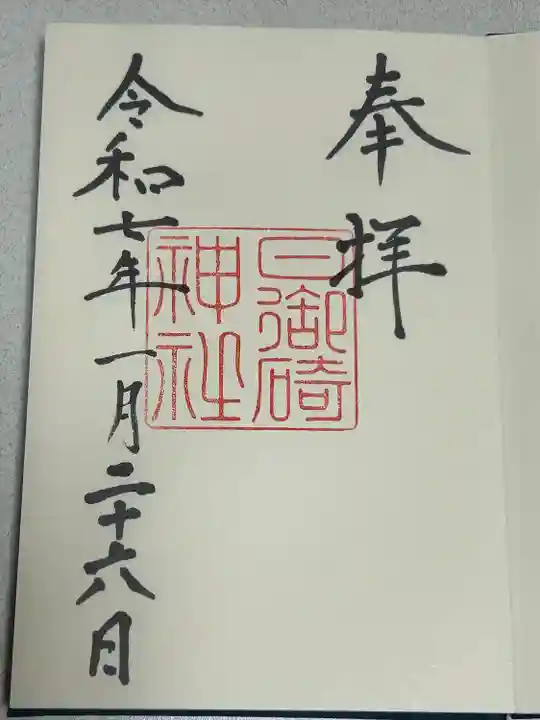 奉拝
日御碕
神社
令和七年一月二十六日